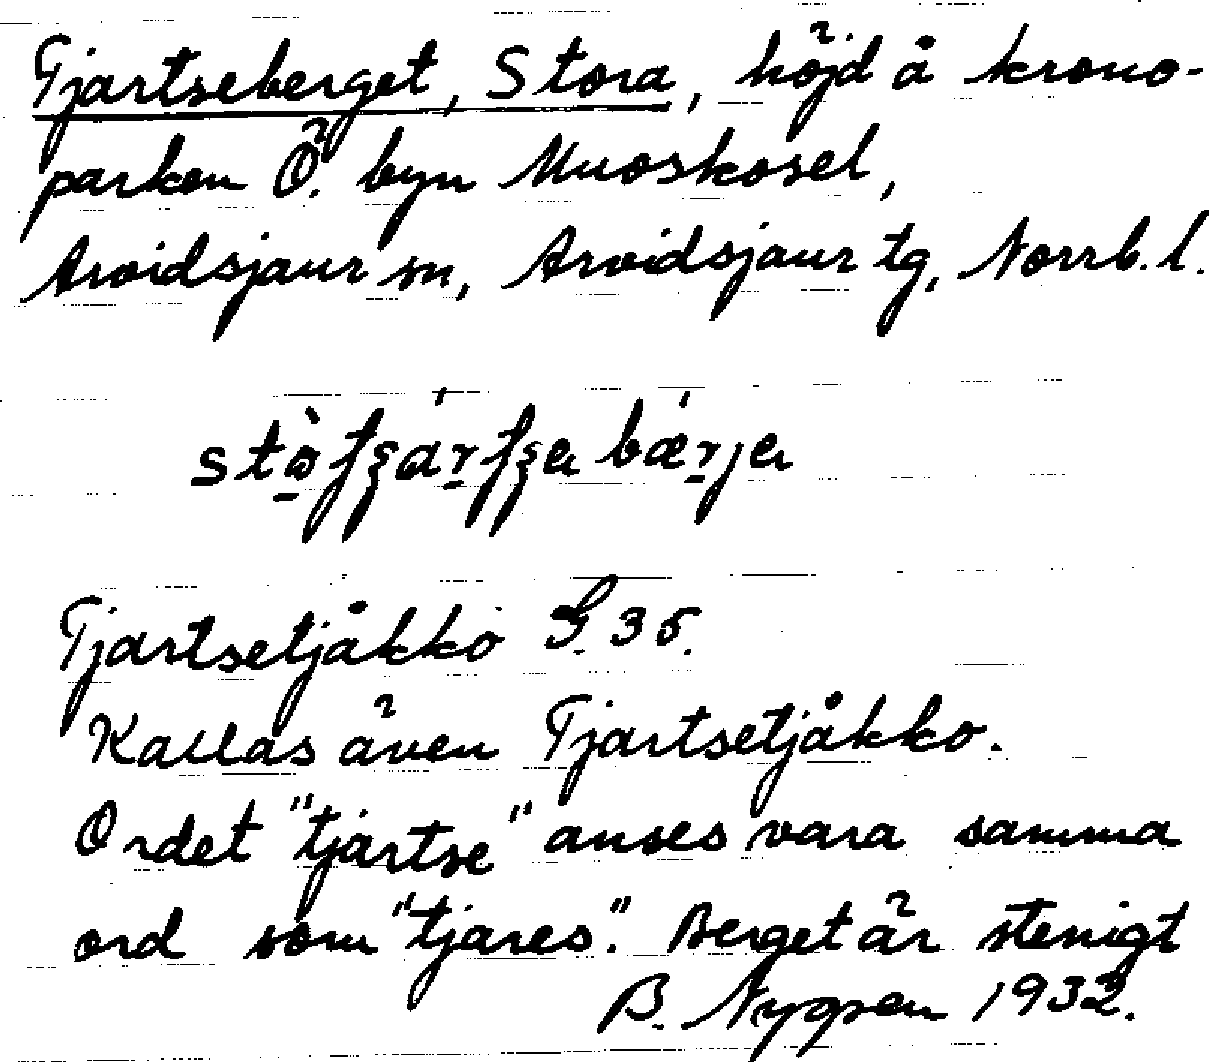 Tjartseberget, Stora, höjd å krono-
parken Ö. byn Muoskosel,
Arvidsjaur sn, Arvidsjaur tg, Norrb. l.
Tjartsetjåkko G. 35.
Kallas även Tjartsetjåkko.
Ordet "tjartse" anses vara samma
ord som "tjares". Berget är stenigt
B. Nygren 1932.